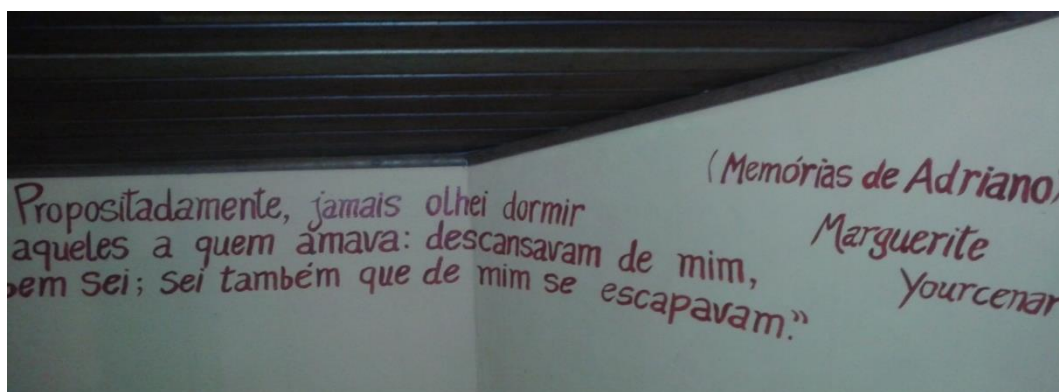 Propositadamente, jamais olhei dormir
aqueles a quem amava: descansavam de mim,
bem sei; sei também que de mim se escapavam."
(Memórias de Adriano)
Marguerite
Yourcenar